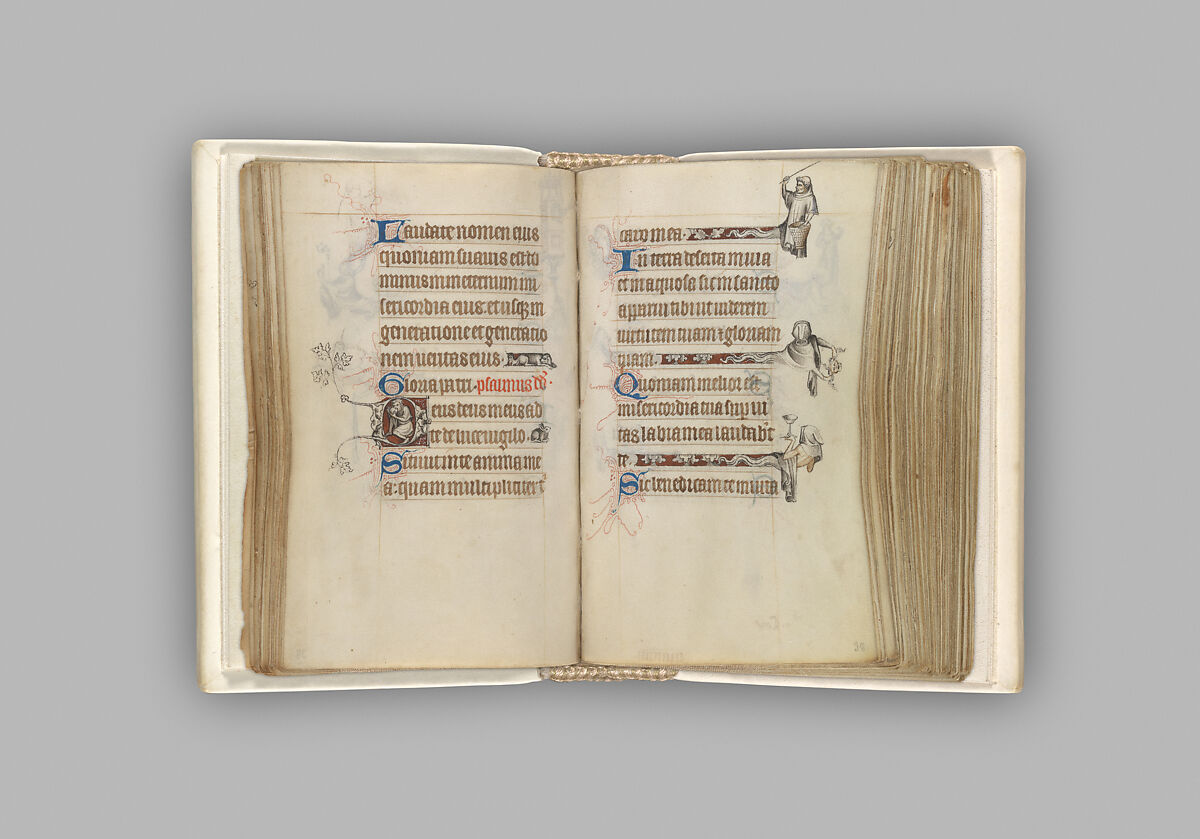 Laudate nomen eius
quoniam suavis est do
minus in eternum mi
sericordia eius: et usq; in
generatione et generatio
nem veritas eius.
Gloria patri. psalmus dd.
Deus deus meus ad
te de luce vigilo.
Sitivit in te anima me
a: quam multipliciter t
caro mea.
In terra deserta invia
et inaquosa sic in sancto
apparui tibi ut viderem
virtutem tuam & gloriam
tuam.
Quoniam melior est
misericordia tua sup vi
tas labia mea laudabt
te.
Sic benedicam te in vita